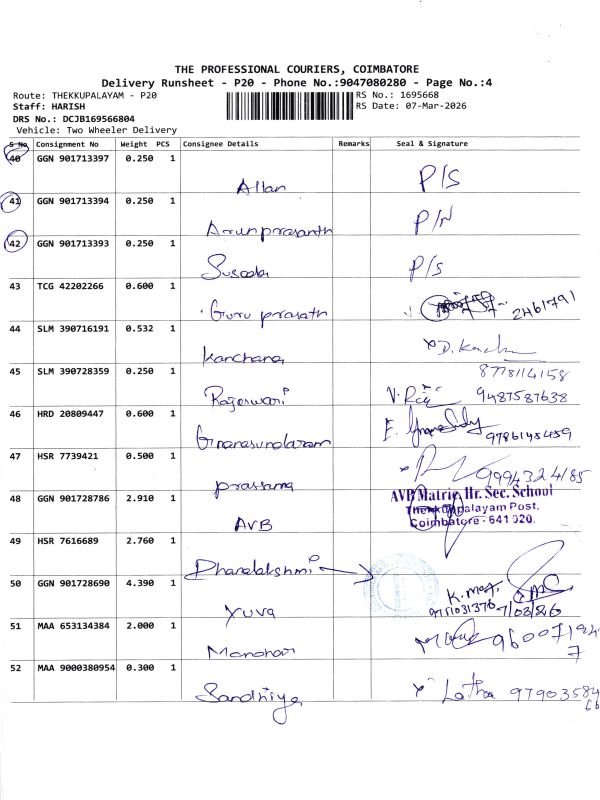 THE PROFESSIONAL COURIERS, COIMBATORE
Delivery Runsheet - P20 - Phone No.:9047080280 - Page No.:4
Route: THEKKUPALAYAM - P20
RS No.: 1695668
Staff: HARISH
RS Date: 07-Mar-2026
DRS No.: DCJB169566804
Vehicle: Two Wheeler Delivery
S No Consignment No Weight PCS Consignee Details Remarks Seal & Signature
40 GGN 901713397 0.250 1
Allan P/S
41 GGN 901713394 0.250 1
Arunprasanth P/N
42 GGN 901713393 0.250 1
P/S
43 TCG 42202266 0.600 1
Guru prasath 2461791
44 SLM 390716191 0.532 1
Kanchana D.
45 SLM 390728359 0.250 1 8778114158
Rajeswari V. 9487587638
46 HRD 20809447 0.600 1
Gnanasundaram E. 9786148459
47 HSR 7739421 0.500 1
prassanna 9994324185
48 GGN 901728786 2.910 1
AVB
AVB Matric Hr. Sec. School
Thekkupalayam Post,
Coimbatore - 641 020.
49 HSR 7616689 2.760 1
Dhanalakshmi
50 GGN 901728690 4.390 1
Yuva 7/03/26
51 MAA 653134384 2.000 1
Manohar
52 MAA 9000380954 0.300 1
Sandhiya Latha 97903584
66